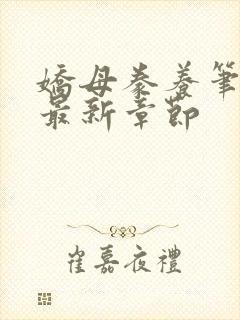 嬌母豢養筆
最新章節
崔嘉夜禮